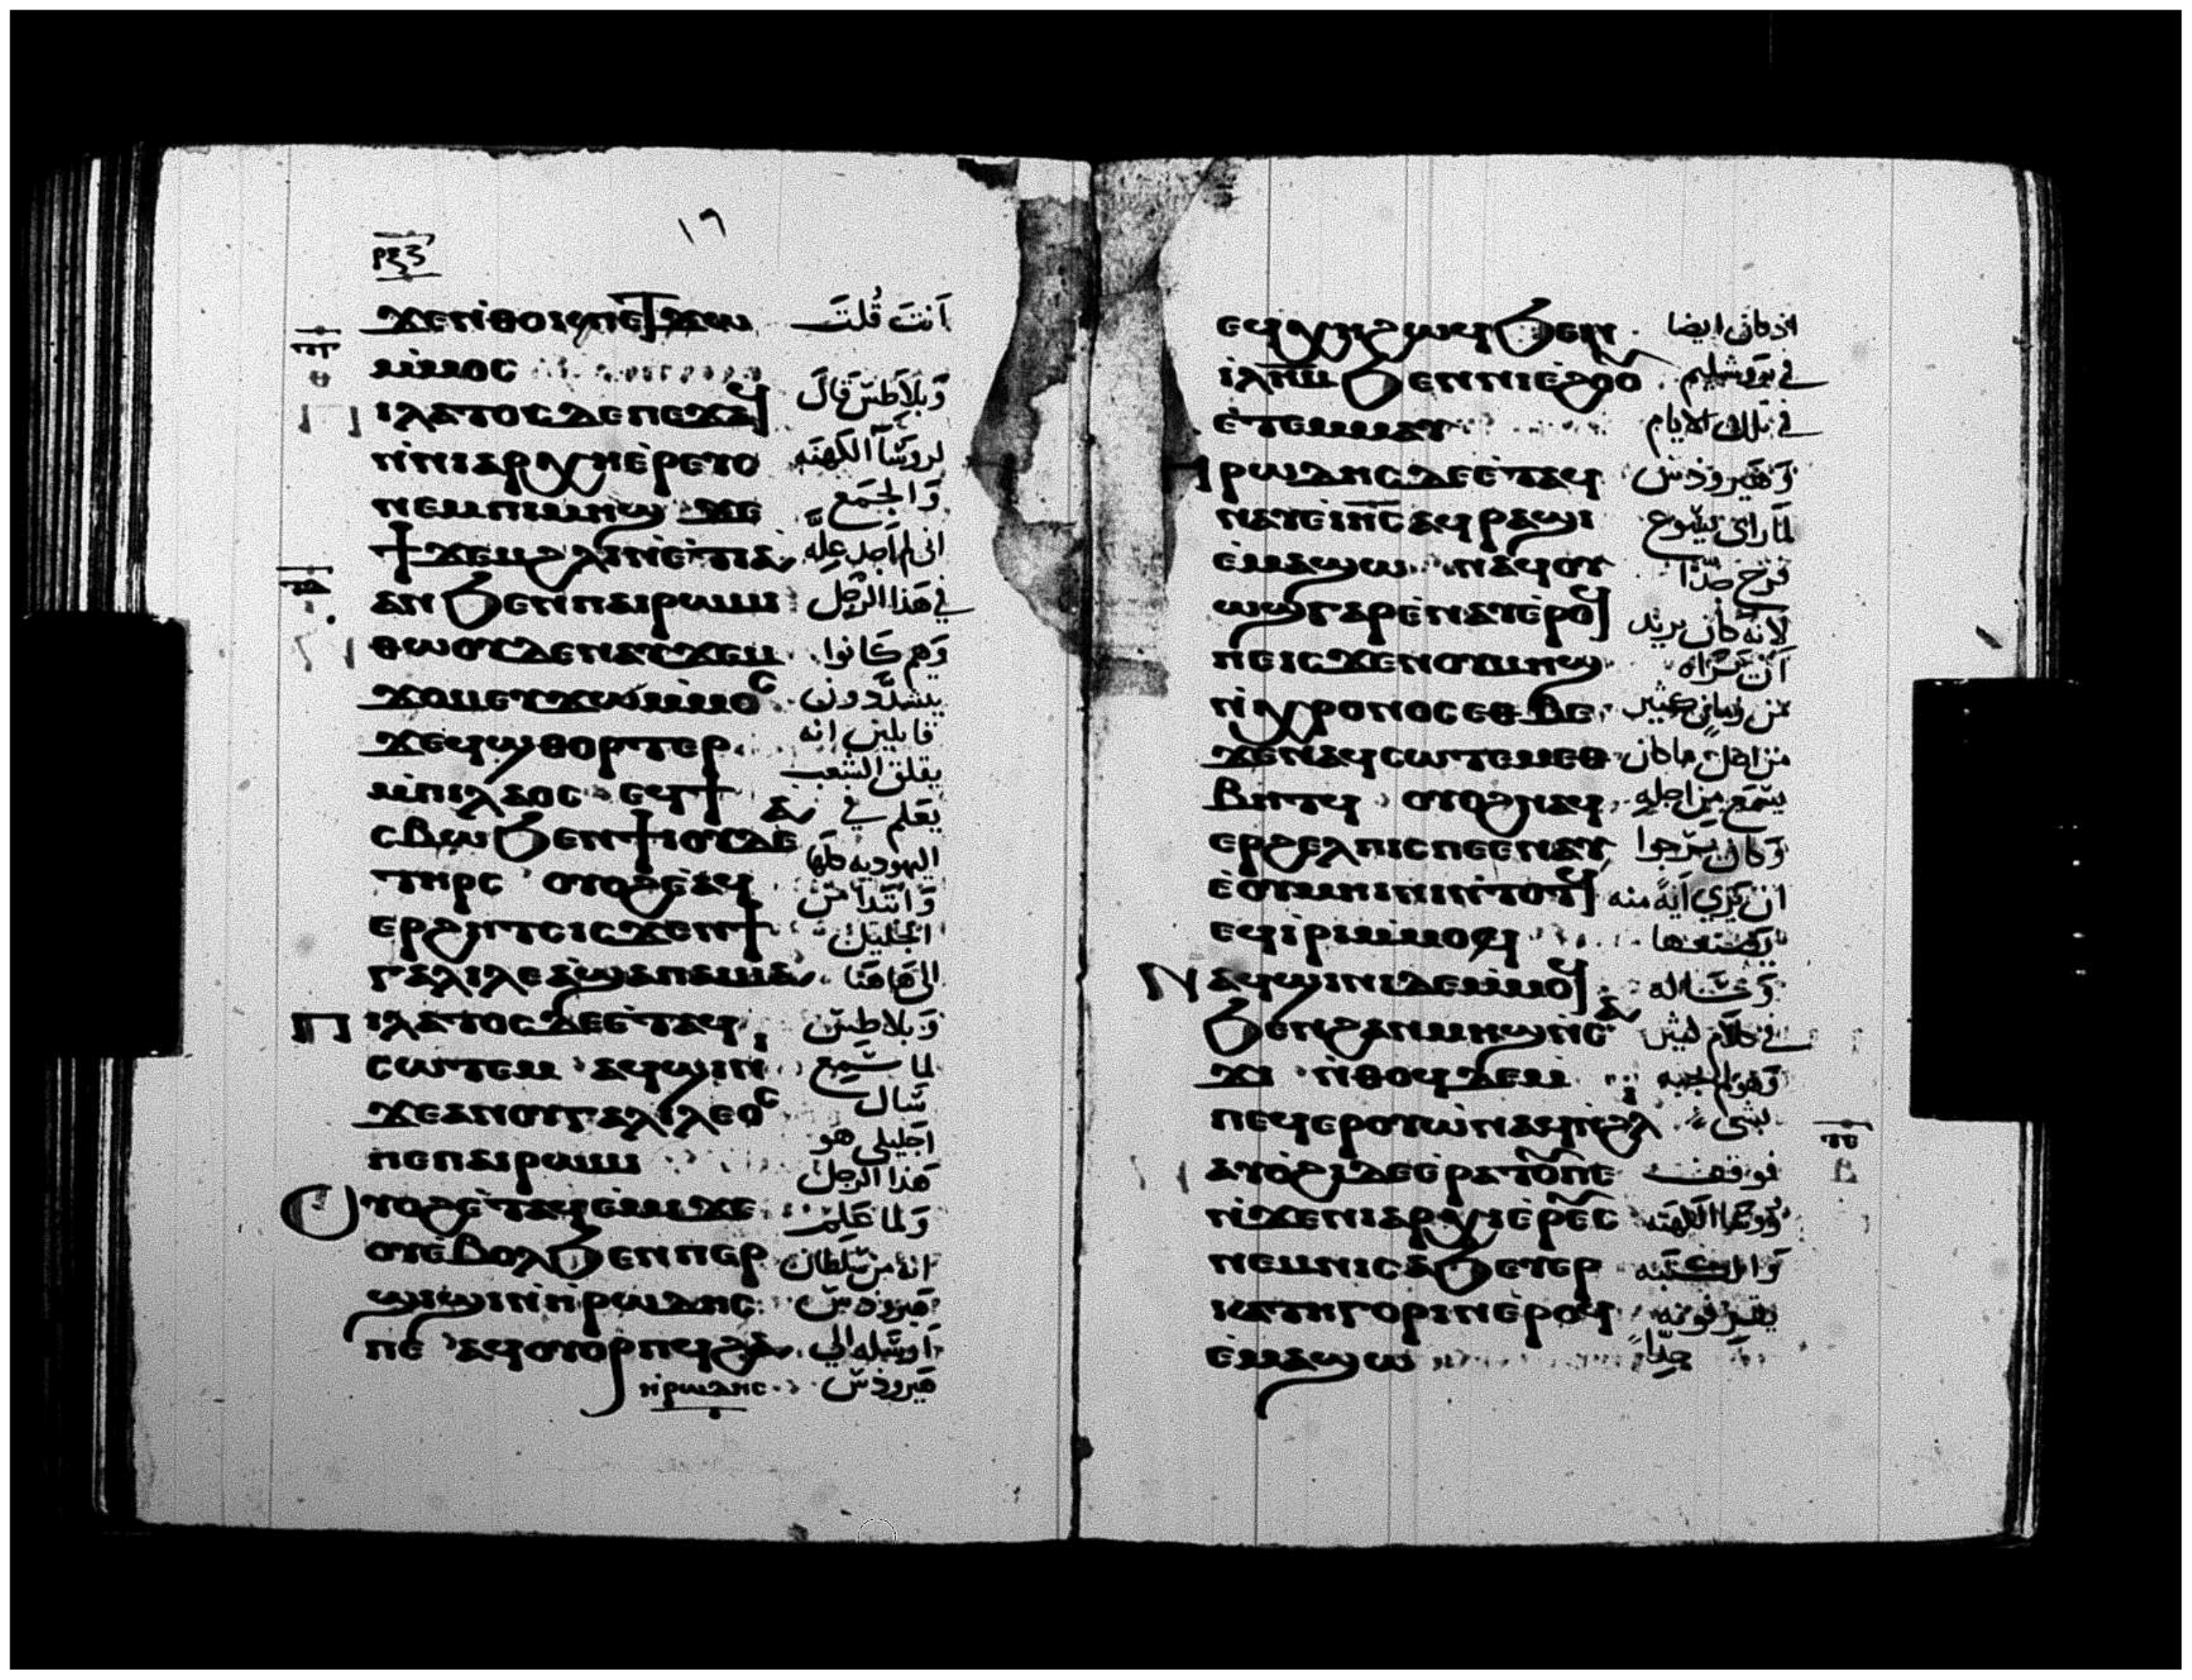 ١٦
ϫⲉⲛ̀ⲑⲟⲕⲡⲉⲧϫⲱ
ⲙ̀ⲙⲟⲥ
ⲡⲓⲗⲁⲧⲟⲥⲇⲉⲡⲉϫⲁϥ
ⲛ̀ⲛⲓⲁⲣⲭⲏⲉ̀ⲣⲉⲩⲥ
ⲛⲉⲙⲡⲓⲙⲏϣ ϫⲉ
ϯϫⲉⲙϩⲗⲓⲛ̀ⲉⲧⲓⲁ
ⲁⲛϧⲉⲛⲡⲁⲓⲣⲱⲙⲓ
ⲛⲑⲱⲟⲩⲇⲉⲛⲁⲩϫⲉⲙ
ϫⲟⲙⲉⲩϫⲱⲙ̀ⲙⲟⲥ
ϫⲉϥϣⲑⲟⲣⲧⲉⲣ
ⲙ̀ⲡⲓⲗⲁⲟⲥ ⲉϥϯ
ⲥⲃⲱϧⲉⲛϯⲓⲟⲩⲇⲉⲁ
ⲧⲏⲣⲥ ⲟⲩⲟϩⲉ̀ⲁϥ
ⲉⲣϩⲏⲧⲥⲓⲥϫⲉⲛϯ
ⲅⲁⲗⲓⲗⲉⲁϣⲁⲡⲁⲙⲁ
ⲡⲓⲗⲁⲧⲟⲥⲇⲉⲉ̀ⲧⲁϥ
ⲥⲱⲧⲉⲙ ⲁϥϣⲓⲛⲓ
ϫⲉⲁⲛⲟⲩⲅⲁⲗⲓⲗⲉⲟⲥ
ⲡⲉⲡⲁⲓⲣⲱⲙⲓ
ⲟⲩⲟϩⲉ̀ⲧⲁϥⲉ̀ⲙⲓϫⲉ
ⲟⲩⲉ̀ⲃⲟⲗϧⲉⲛⲡⲉⲣ
ϣⲓϣⲓⲛ̀ⲏ̀ⲣⲱⲇⲏⲥ
ⲡⲉ ⲁϥⲟⲩⲟⲣⲡϥϩⲁ
ⲏ̀ⲣⲱⲇⲏⲥ
اَنتَ قُلتَ
وَبلاَطسَ قَالَ
لروسَآ الكَهنَه
وَالجمَع
انى لم اجد عِلَّه
في هَذا الرَجُل
وَهم كَانوا
يتشدَّدون
قايلين انه
يقلق الشعب
يَعَلم في
اليهوديه كلها
وَابتدَا مَن
الجَليَل
الي هَاهَنا
وَبلاطسَ
لما سَمِع
سَال
اجليلى هو
هَذا الرَجل
وَلما عَلم
انه من سَلطان
هيرودسَ
اَرسَله الي
هيرودسَ
ⲉϥⲭⲏϩⲱϥϧⲉⲛ
ⲓⲗⲏⲙϧⲉⲛⲛⲓⲉ̀ϩⲟⲟⲩ
ⲉ̀ⲧⲉⲙⲙⲁⲩ
ⲏⲣⲱⲇⲏⲥⲇⲉⲉ̀ⲧⲁϥ
ⲛⲁⲩⲉⲓⲏⲥⲁϥⲣⲁϣⲓ
ⲉ̀ⲙⲁϣⲱ ⲛⲁϥⲟⲩ
ⲱϣⲅⲁⲣⲉ̀ⲛⲁⲩⲉ̀ⲣⲟϥ
ⲡⲉⲓⲥϫⲉⲛⲟⲩⲙⲏϣ
ⲛ̀ⲭⲣⲟⲛⲟⲥⲉⲑⲃⲉ
ϫⲉⲛⲁϥⲥⲱⲧⲉⲙⲉⲑ
ⲃⲏⲧϥ ⲟⲩⲟϩⲛⲁϥ
ⲉⲣϩⲉⲗⲡⲓⲥⲡⲉⲉⲛⲁⲩ
ⲉ̀ⲟⲩⲙⲏⲓⲛⲓⲛ̀ⲧⲟⲧϥ
ⲉϥⲓ̀ⲣⲓⲙ̀ⲙⲟϥ
ⲛⲁϥϣⲓⲛⲓⲇⲉⲙ̀ⲙⲟϥ
ϧⲉⲛϩⲁⲛⲙⲏϣⲛ̀ⲥⲁ
ϫⲓ ⲛ̀ⲑⲟϥⲇⲉⲙ
ⲡⲉϥⲉⲣⲟⲩⲱ̀ⲛⲁϥⲛ̀ϩⲗⲓ
ⲁⲩⲟ̀ϩⲓⲇⲉⲉ̀ⲣⲁⲧⲟⲩⲡⲉ
ⲛ̀ϫⲉⲛⲓⲁⲣⲭⲓⲉ̀ⲣⲉⲩⲥ
ⲛⲉⲙⲛⲓⲥⲁϧⲉⲩⲉⲣ
ⲕⲁⲧⲏⲅⲟⲣⲓⲛⲉ̀ⲣⲟϥ
ⲉ̀ⲙⲁϣⲱ
اذ كان ايضا
في يَروشَليم
في تلك الايام
وَهَيرودسَ
لمَا رَاى يسَوع
فرَح جدَّا
لانه كان يريد
اَن يَرَاه
مَن زمَان كثير
من اجل مَا كان
يسَمَع من اجله
وَكان يَرَجوا
ان يَري ايَة منه
يَصنعَها
وَسَاله
في كلاَم كثير
وَهو لم يجبه
بشى
فوقفت
رووسَا الكهَنه
وَالكتبَه
يقَرفونه
جدّاً